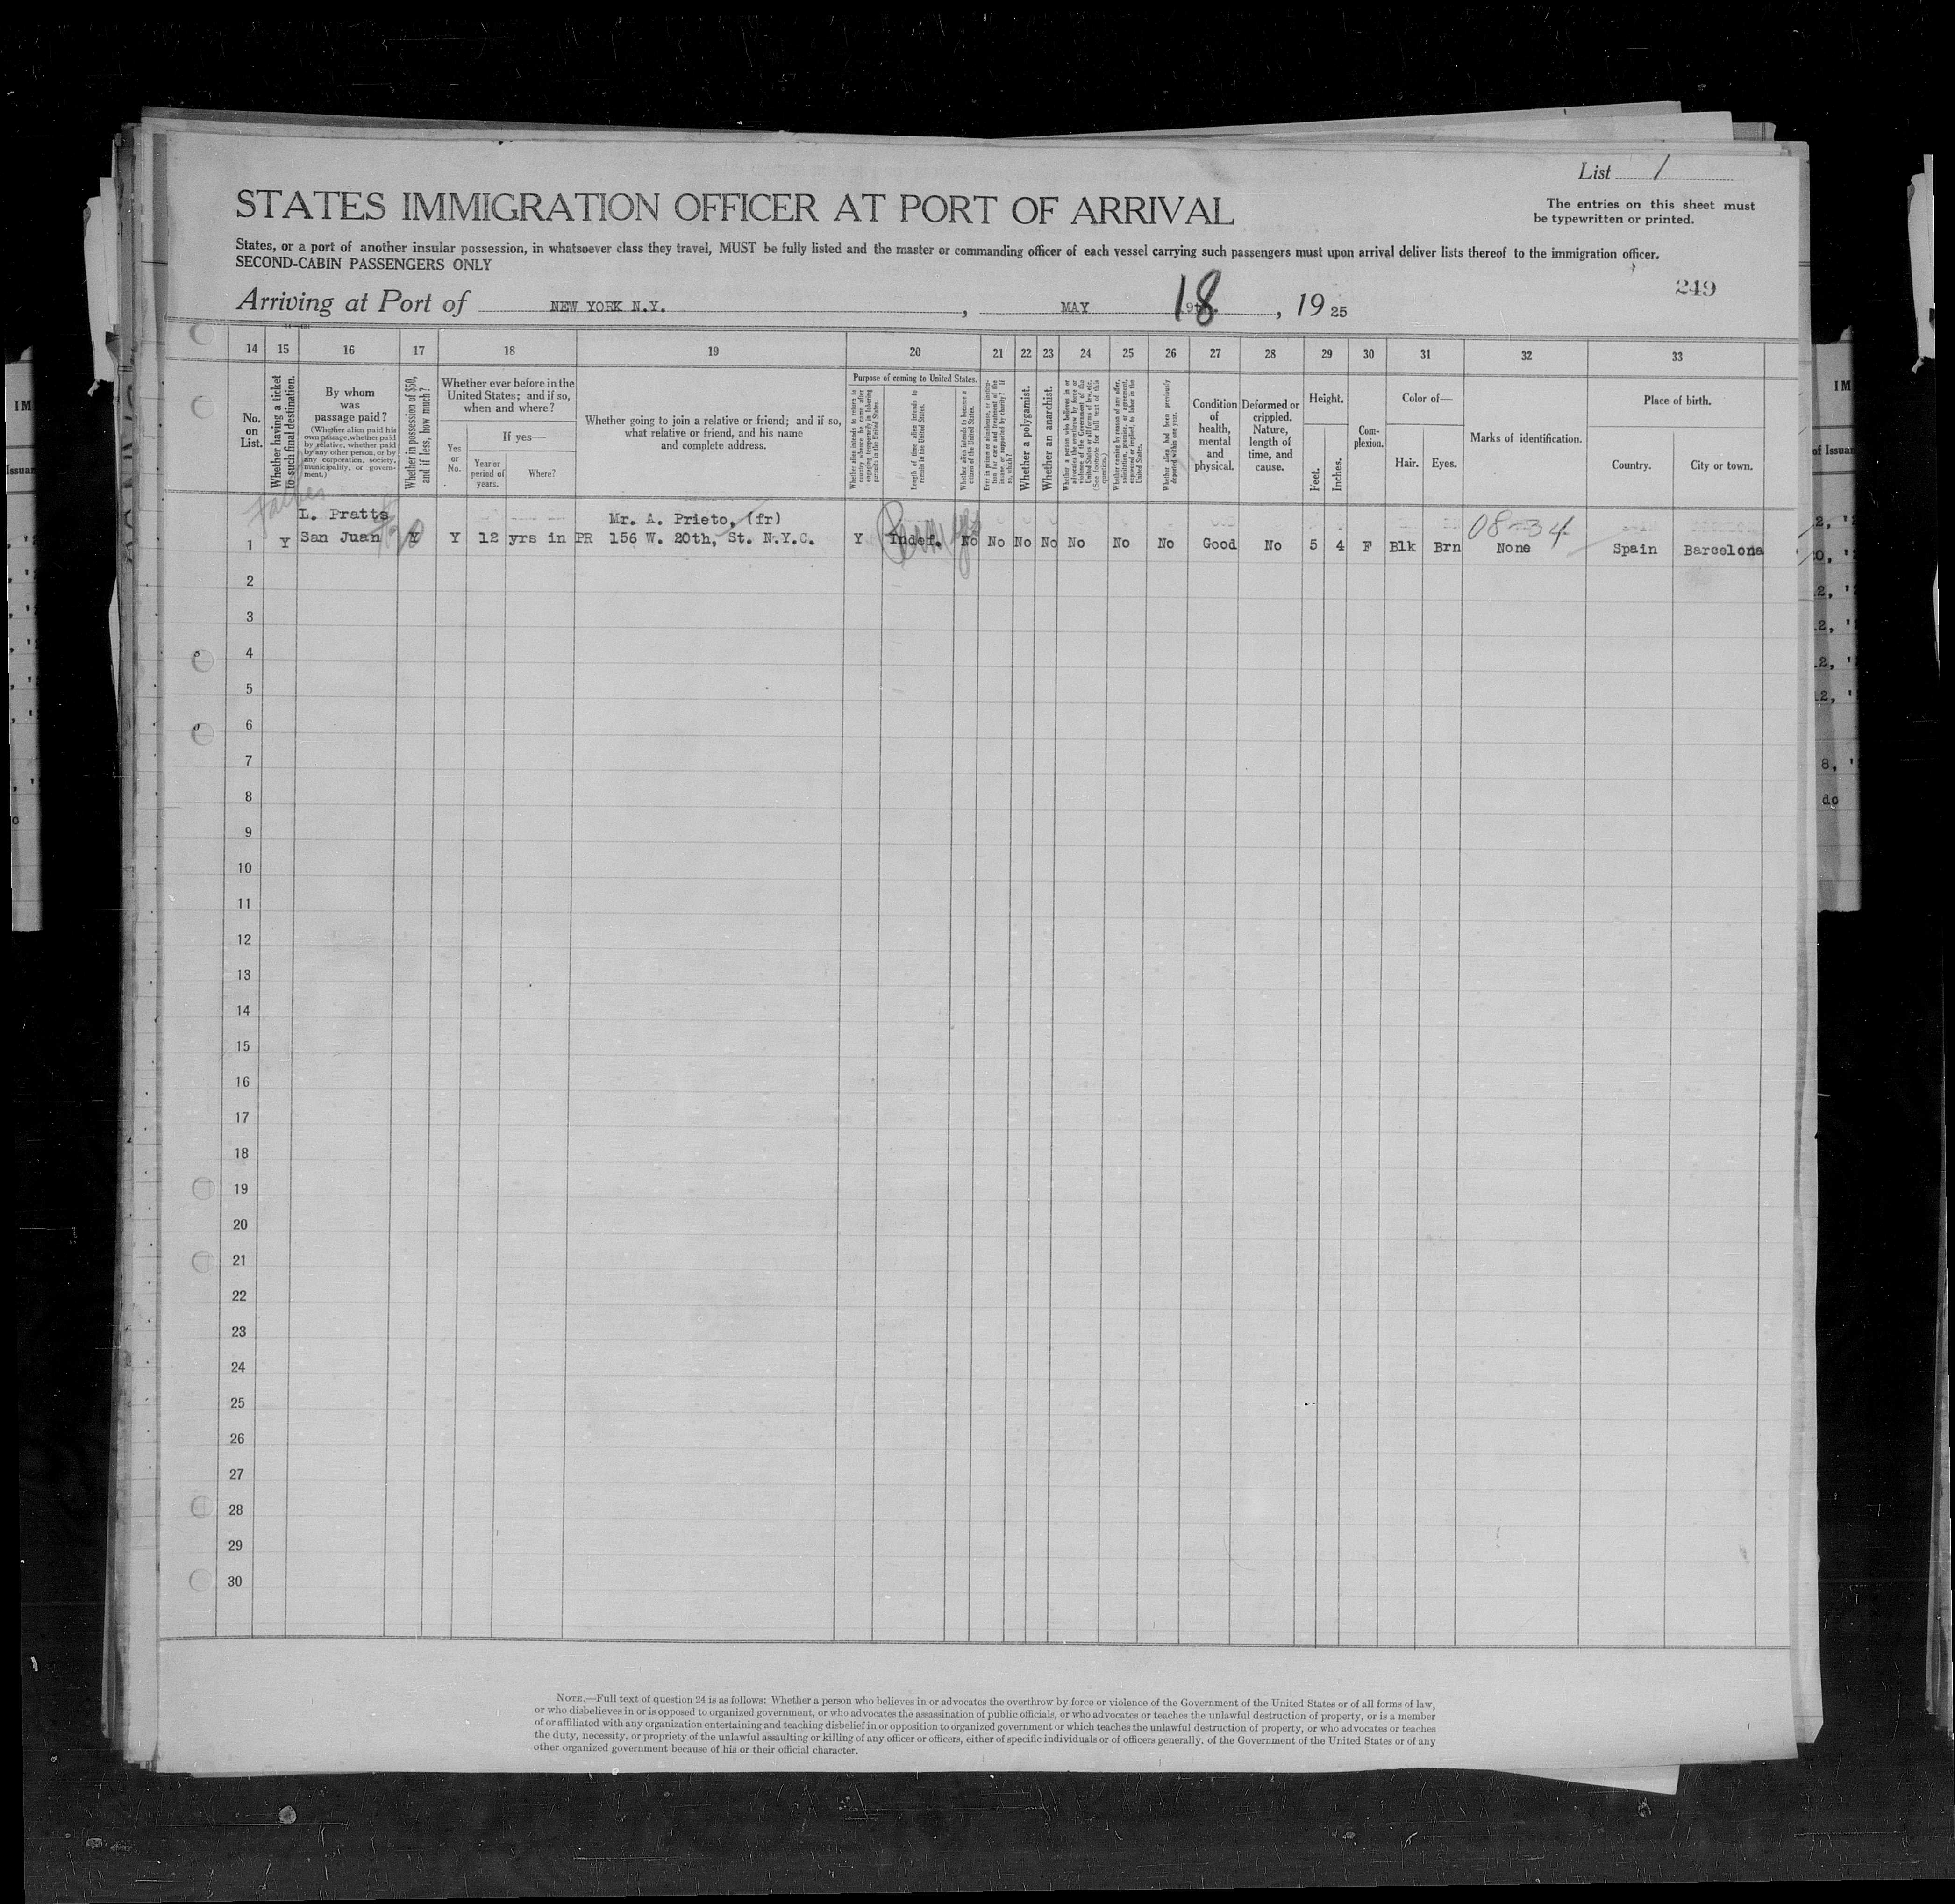 List 1
STATES IMMIGRATION OFFICER AT PORT OF ARRIVAL
The entries on this sheet must
be typewritten or printed.
States, or a port of another insular possession, in whatsoever class they travel, MUST be fully listed and the master or commanding officer of each vessel carrying such passengers must upon arrival deliver lists thereof to the immigration officer.
SECOND-CABIN PASSENGERS ONLY
249
Arriving at Port of NEW YORK N.Y. , MAY 18 , 19 25
14 15 16 17 18 19 20 21 22 23 24 25 26 27 28 29 30 31 32 33
No.
on
List.
Whether having a ticket
to such final destination.
By whom
was
passage paid?
(Whether alien paid his
own passage, whether paid
by relative, whether paid
by any other person, or by
any corporation, society,
municipality, or govern-
ment.)
Whether in possession of $50,
and if less, how much?
Whether ever before in the
United States; and if so,
when and where?
Yes
or
No.
If yes—
Year or
period of
years.
Where?
Whether going to join a relative or friend; and if so,
what relative or friend, and his name
and complete address.
Purpose of coming to United States.
Whether alien intends to return to
country whence he came after
engaging temporarily in laboring
pursuits in the United States.
Length of time alien intends to
remain in the United States.
Whether alien intends to become a
citizen of the United States.
Ever in prison or almshouse, or institu-
tion for care and treatment of the
insane, or supported by charity? If
so, which?
Whether a polygamist.
Whether an anarchist.
Whether a person who believes in or
advocates the overthrow by force or
violence of the Government of the
United States or all forms of law, etc.
(See footnote for full text of this
question.)
Whether coming by reason of any offer,
solicitation, promise, or agreement,
expressed or implied, to labor in the
United States.
Whether alien had been previously
deported within one year.
Condition
of
health,
mental
and
physical.
Deformed or
crippled.
Nature,
length of
time, and
cause.
Height.
Feet.
Inches.
Com-
plexion.
Color of—
Hair.
Eyes.
Marks of identification.
Place of birth.
Country.
City or town.
L. Pratts Mr. A. Prieto, (fr) 08-34
1 Y San Juan Y Y 12 yrs in PR 156 W. 20th, St. N.Y.C. Y Indef. No No No No No No No Good No 5 4 F Blk Brn None Spain Barcelona
2
3
4
5
6
7
8
9
10
11
12
13
14
15
16
17
18
19
20
21
22
23
24
25
26
27
28
29
30
NOTE.—Full text of question 24 is as follows: Whether a person who believes in or advocates the overthrow by force or violence of the Government of the United States or of all forms of law,
or who disbelieves in or is opposed to organized government, or who advocates the assassination of public officials, or who advocates or teaches the unlawful destruction of property, or is a member
of or affiliated with any organization entertaining and teaching disbelief in or opposition to organized government or which teaches the unlawful destruction of property, or who advocates or teaches
the duty, necessity, or propriety of the unlawful assaulting or killing of any officer or officers, either of specific individuals or of officers generally, of the Government of the United States or of any
other organized government because of his or their official character.